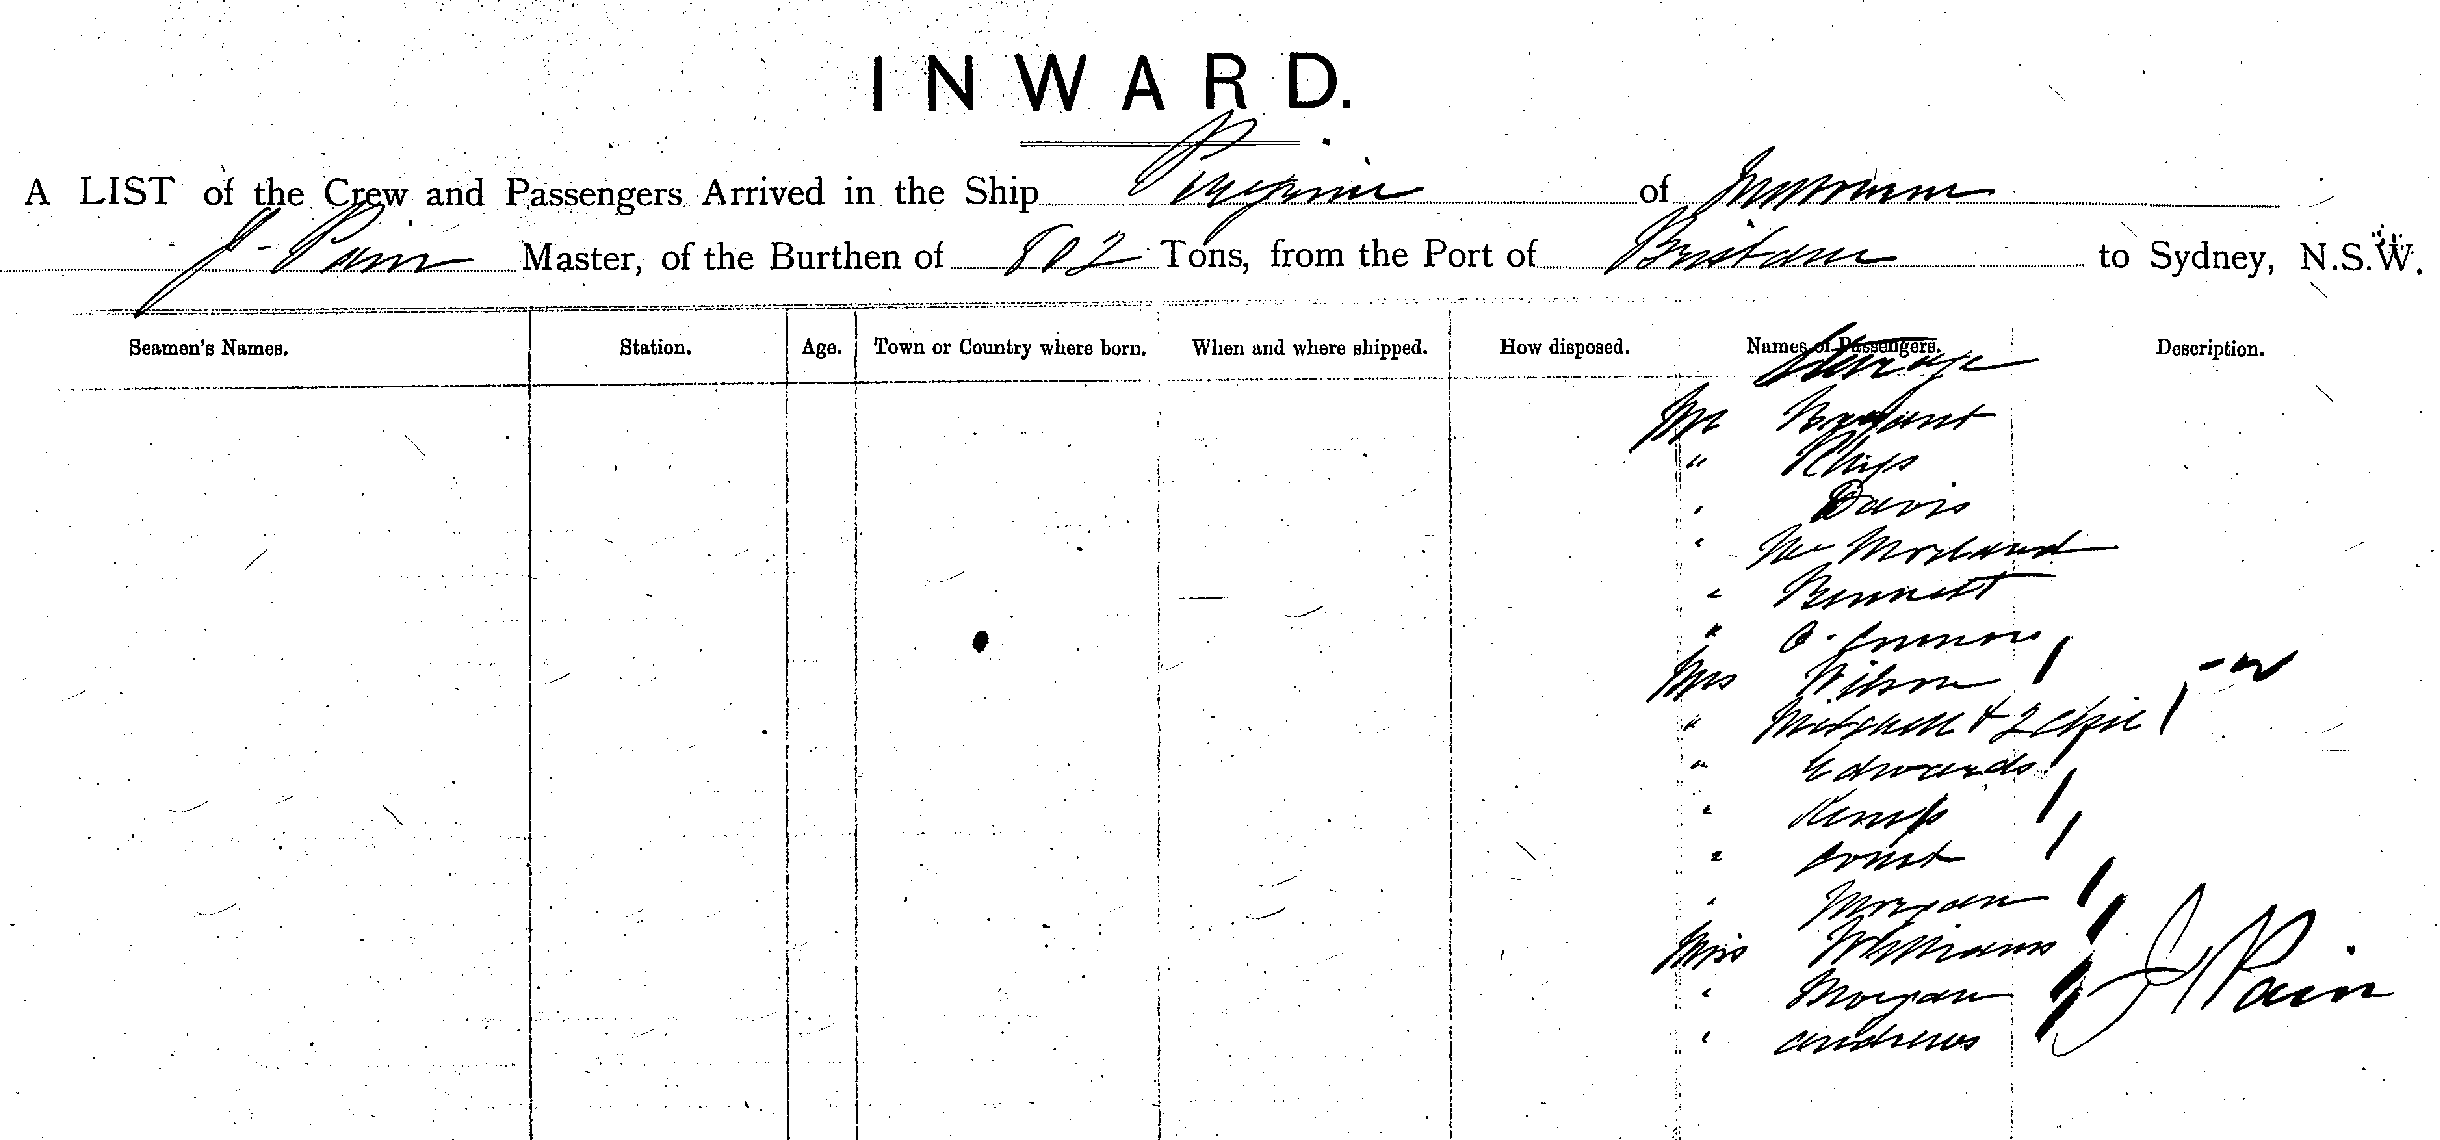 INWARD.
A LIST of the Crew and Passengers Arrived in the Ship of Melbourne
J. Pain Master, of the Burthen of 802 Tons, from the Port of Brisbane to Sydney, N.S.W.
Seamen's Names. Station. Age. Town or Country where born. When and where shipped. How disposed. Names of Passengers. Description.
Steerage
Mr
" Rhys
" Davis
" 
" Bennett
" O. Connor
Mrs Wilson
" Mitchell & 2 chil
" Edwards
" Kemp
"
" Morgan
Miss Williams
" Morgan
" Andrews
J Pain